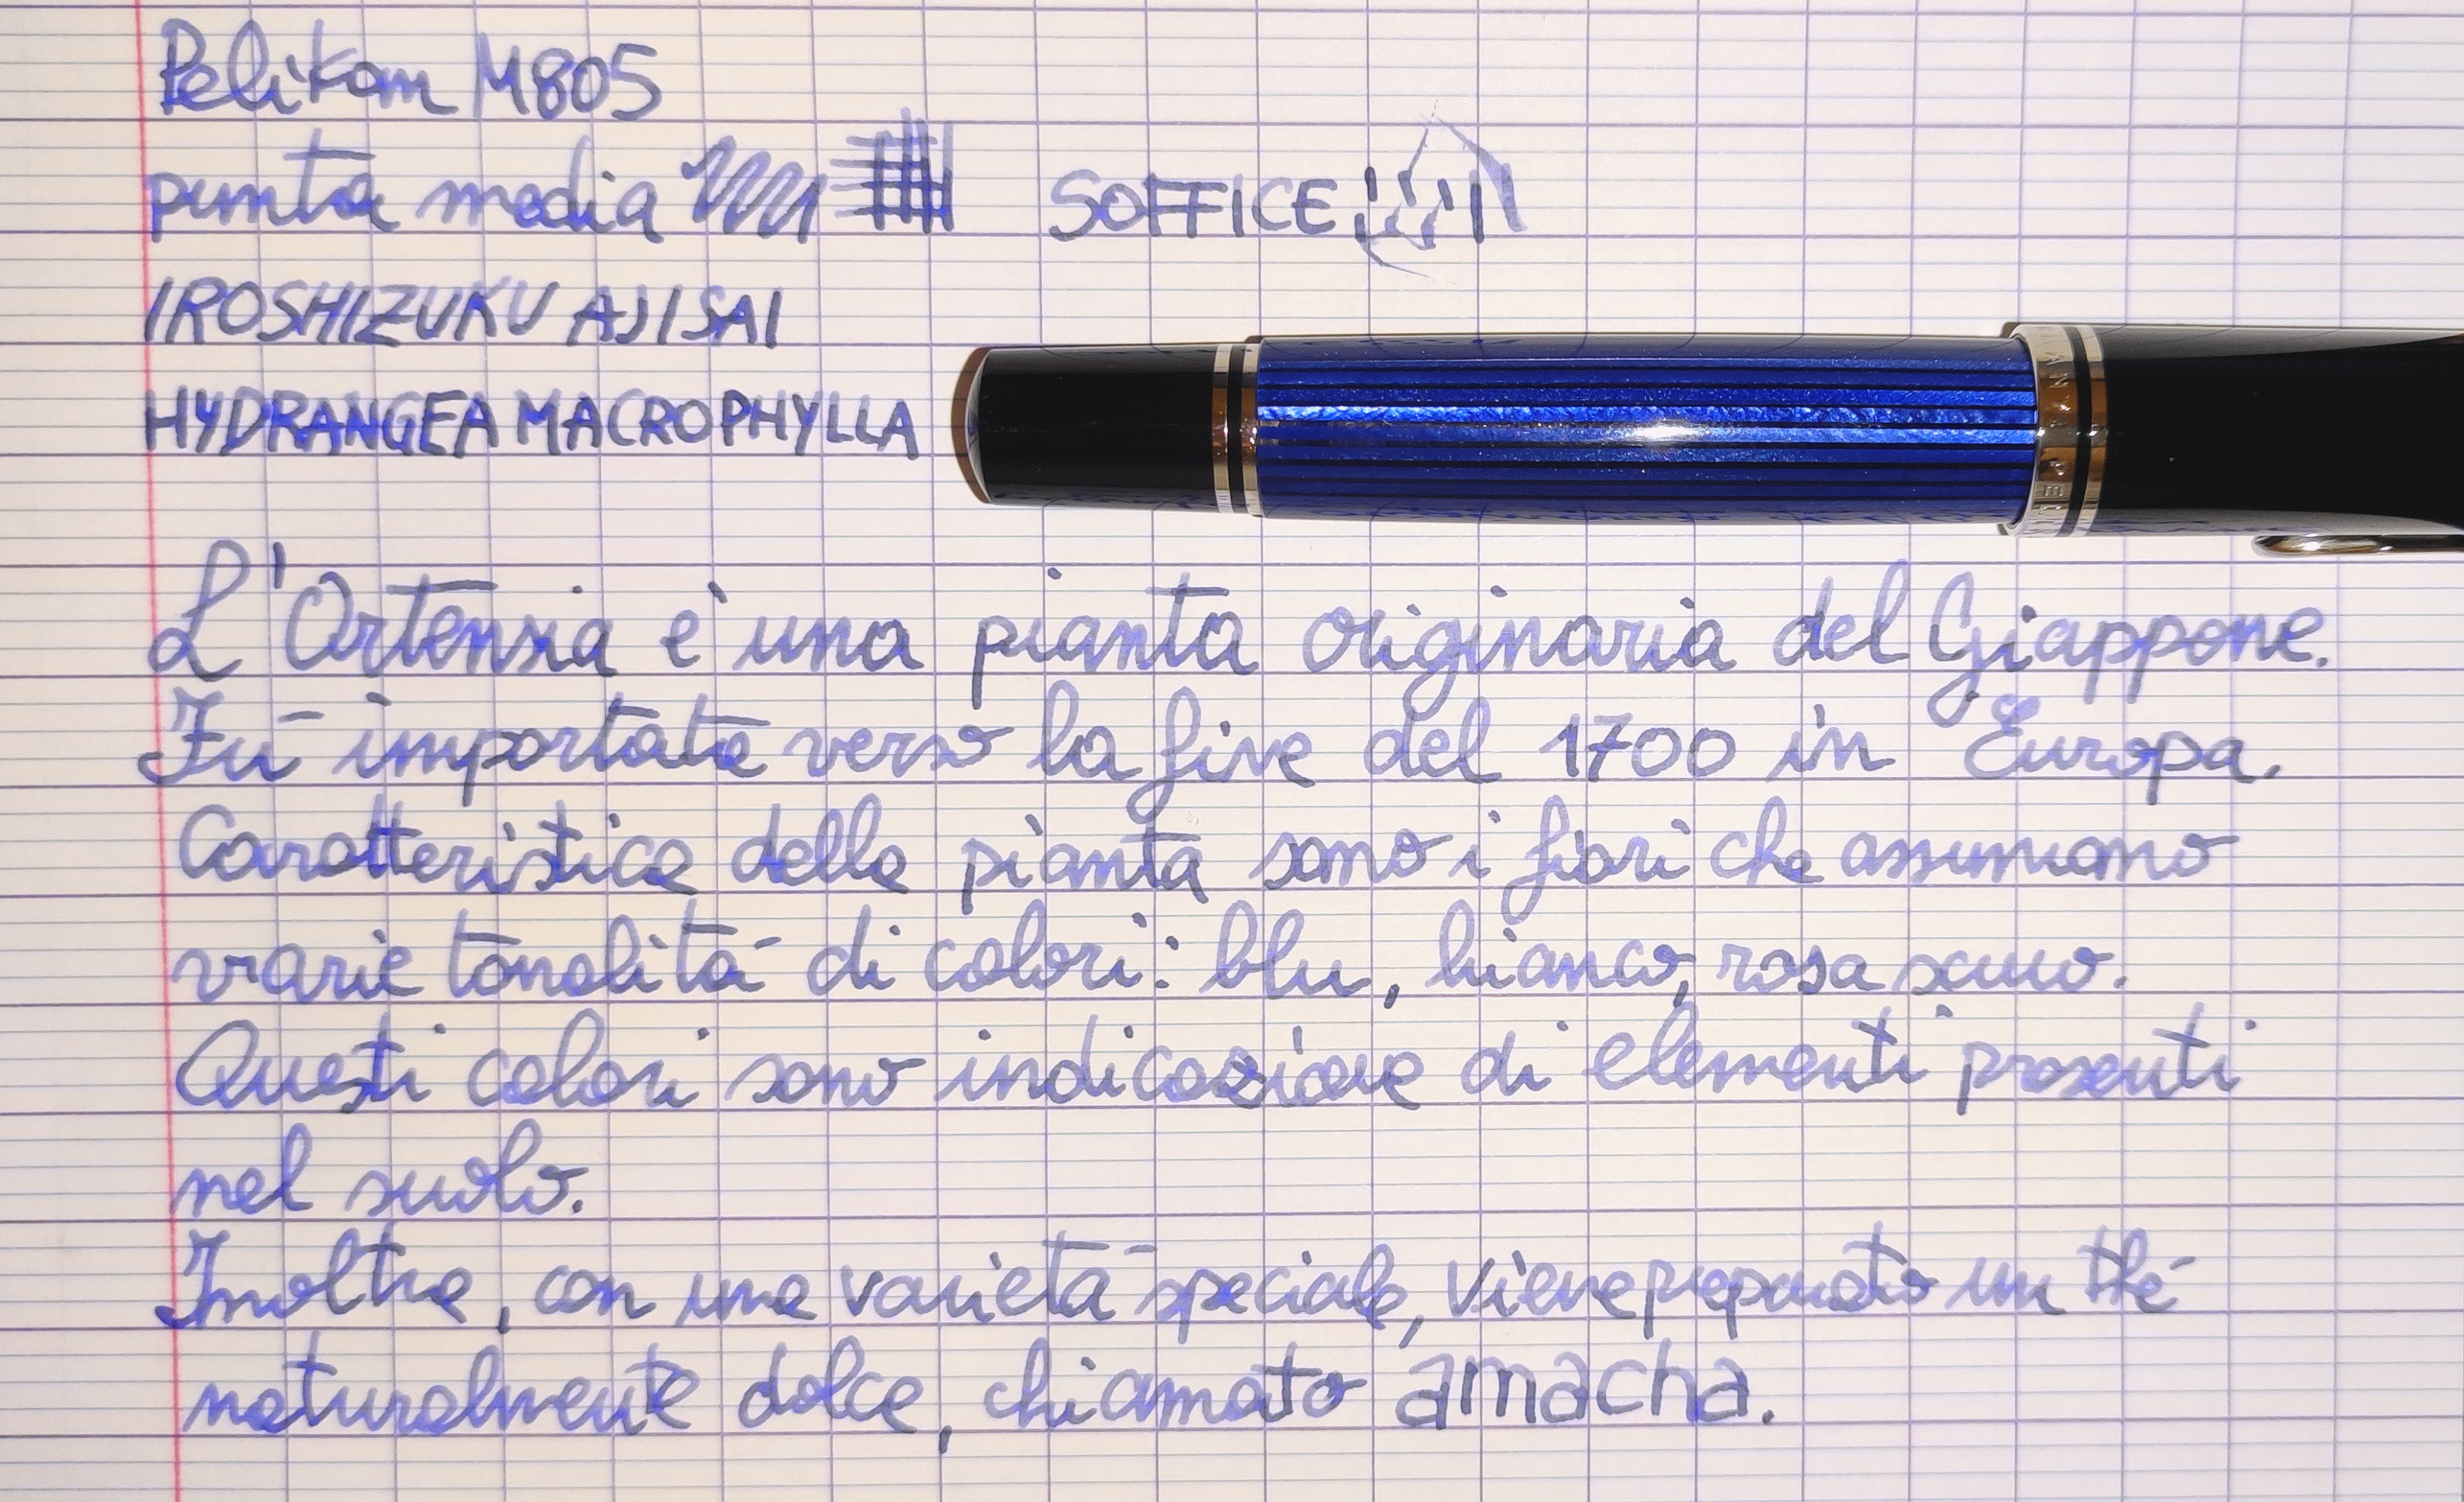 Pelikan M805
punta media SOFFICE
IROSHIZUKU AJISAI
HYDRANGEA MACROPHYLLA
L'Ortensia è una pianta originaria del Giappone.
Fù importata verso la fine del 1700 in Europa.
Caratteristica della pianta sono i fiori che assumono
varie tonalità di colori: blu, bianco, rosa scuro.
Questi colori sono indicazione di elementi presenti
nel suolo.
Inoltre, con una varietà speciale, viene preparato un thé
naturalmente dolce, chiamato amacha.